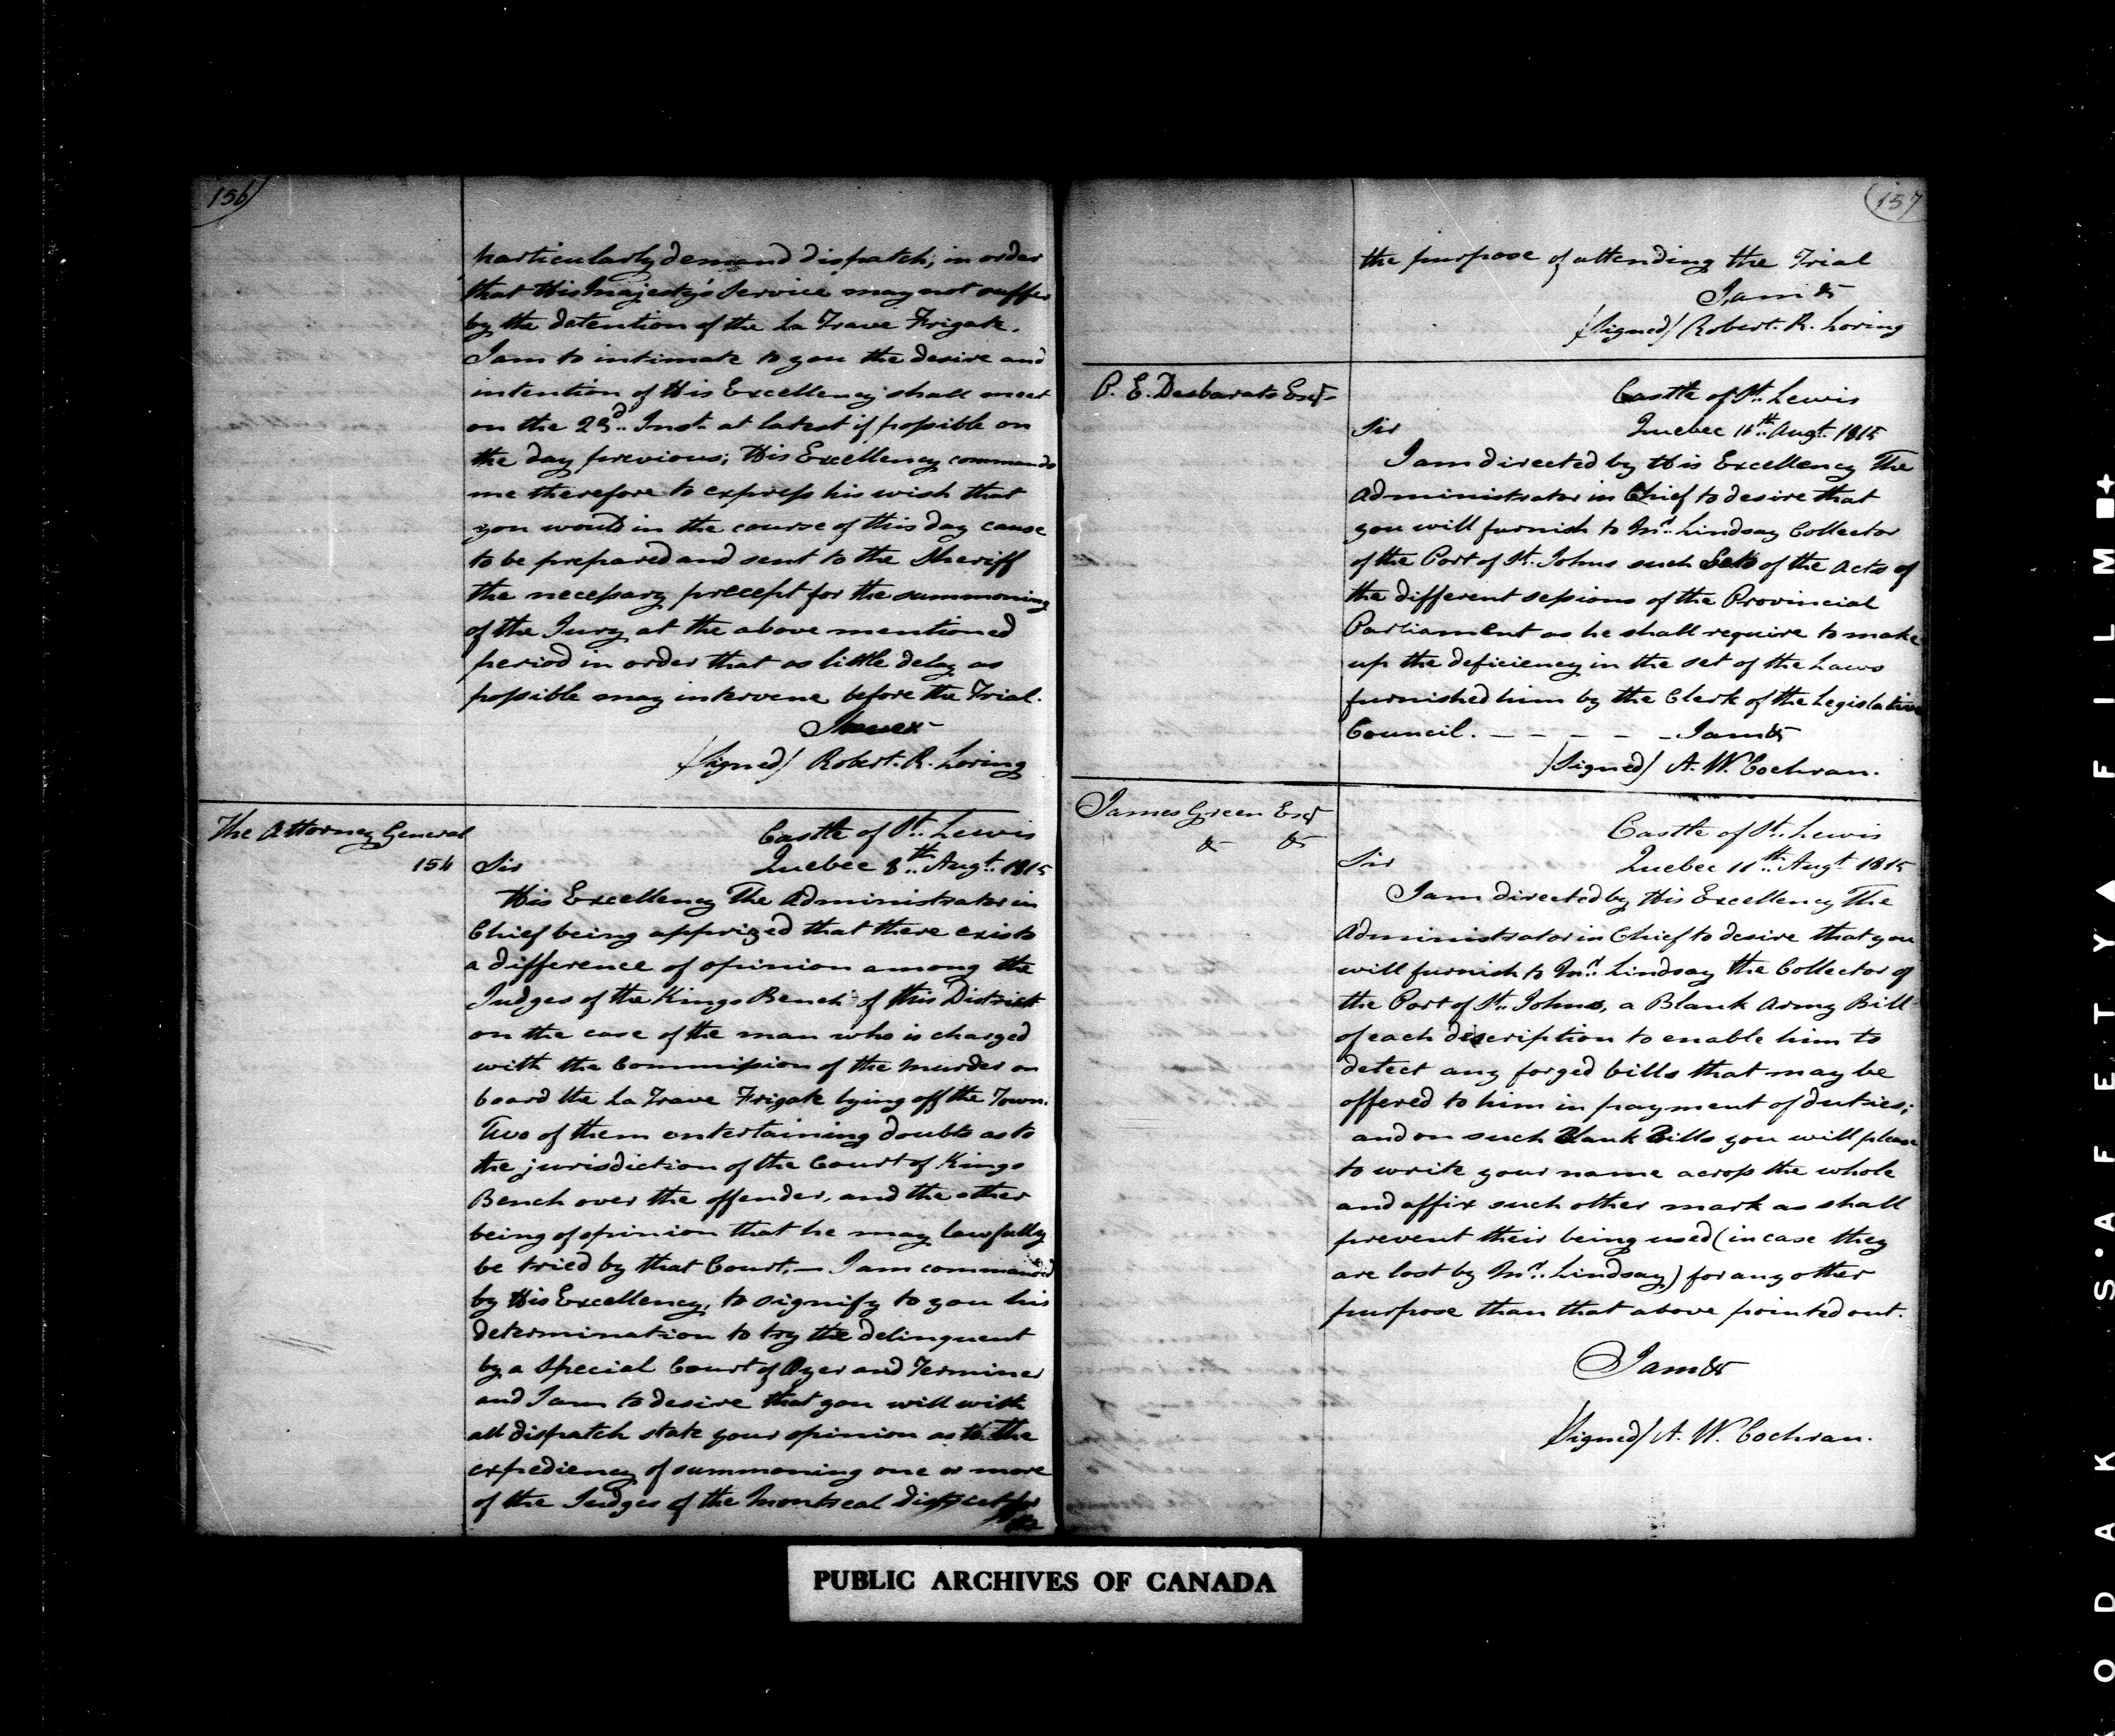 156
particularly demand dispatch, in order
that His Majesty's Service may not suffer
by the detention of the La Trave Frigate.
I am to intimate to you the desire and
intention of His Excellency shall meet
on the 23d. Inst. at latest if possible on
the day previous; His Excellency commands
me therefore to express his wish that
you would in the course of this day cause
to be prepared and sent to the Sheriff
the necessary precept for the summoning
of the Jury at the above mentioned
period in order that as little delay as
possible may intervene before the Trial.
(Signed) Robert. R. Loring
The Attorney General
154
Castle of St. Lewis
Sir Quebec 8th. Augt. 1815
His Excellency The Administrator in
Chief being apprized that there exists
a difference of opinion among the
Judges of the Kings Bench of this District
on the case of the man who is charged
with the Commission of the Murder on
board the La Trave Frigate lying off the Town.
Two of them entertaining doubts as to
the jurisdiction of the Court of Kings
Bench over the offender, and the other
being of opinion that he may lawfully
be tried by that Court. — I am commanded
by His Excellency, to signify to you his
determination to try the delinquent
by a Special Court of Oyer and Terminer
and I am to desire that you will with
all dispatch state your opinion as to the
expediency of summoning one or more
of the Judges of the Montreal district for
the
157
the purpose of attending the Trial
I am &c
(Signed) Robert. R. Loring
P. E. Desbarats Esqr
Castle of St. Lewis
Sir Quebec 11th. Augt. 1815
I am directed by His Excellency The
Administrator in Chief to desire that
you will furnish to Mr. Lindsay Collector
of the Port of St. Johns such Sets of the Acts of
the different sessions of the Provincial
Parliament as he shall require to make
up the deficiency in the set of the Laws
furnished him by the Clerk of the Legislative
Council. — — — — — I am &c
(Signed) A. W. Cochran.
James Green Esqr
&c &c
Castle of St. Lewis
Sir Quebec 11th. Augt 1815
I am directed by His Excellency The
Administrator in Chief to desire that you
will furnish to Mr. Lindsay the Collector of
the Port of St. Johns, a Blank Army Bill
of each discription to enable him to
detect any forged bills that may be
offered to him in payment of duties;
and on such Blank Bills you will please
to write your name across the whole
and affix such other mark as shall
prevent their being used (in case they
are lost by Mr. Lindsay) for any other
purpose than that above pointed out.
I am &c
(Signed) A. W. Cochran.
PUBLIC ARCHIVES OF CANADA
KODAK S·AFETY▲ FILM ■+